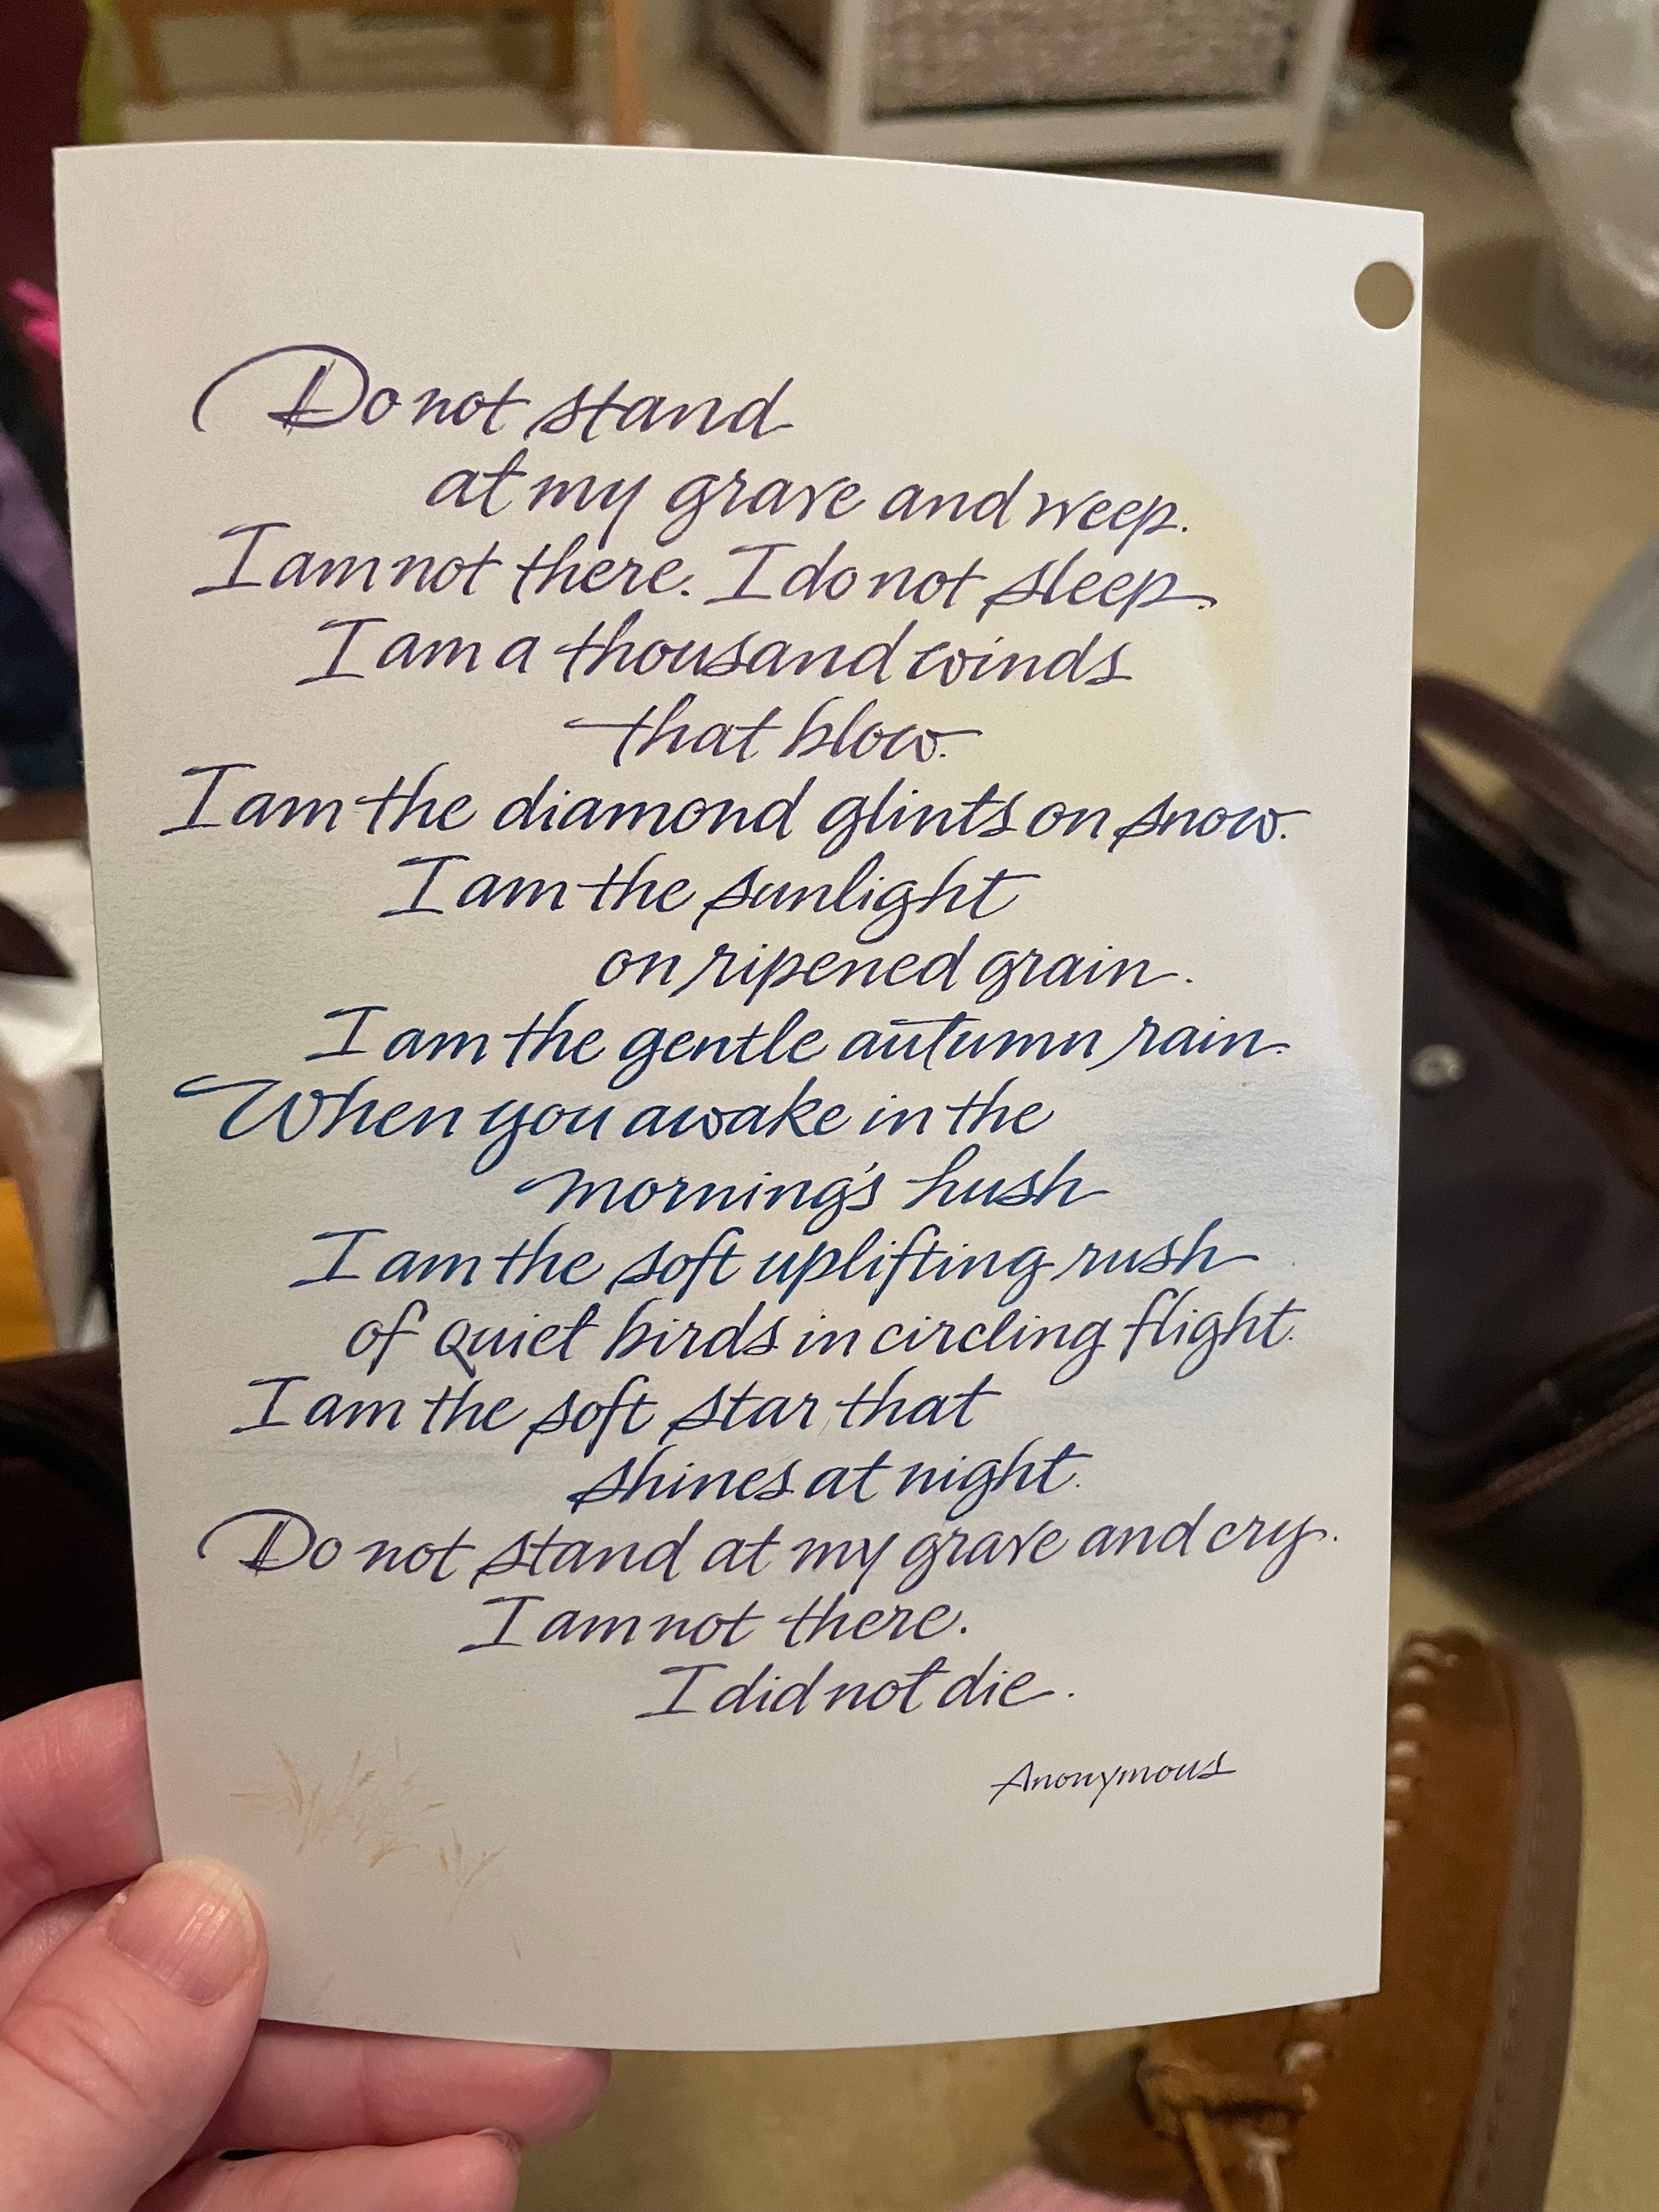 Do not stand
at my grave and weep.
I am not there. I do not sleep.
I am a thousand winds
that blow.
I am the diamond glints on snow.
I am the sunlight
on ripened grain.
I am the gentle autumn rain.
When you awake in the
morning's hush
I am the soft uplifting rush
of quiet birds in circling flight.
I am the soft star that
shines at night.
Do not stand at my grave and cry.
I am not there.
I did not die.
Anonymous